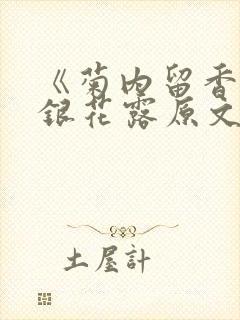 《菊内留香
銀花露原文
土屋計